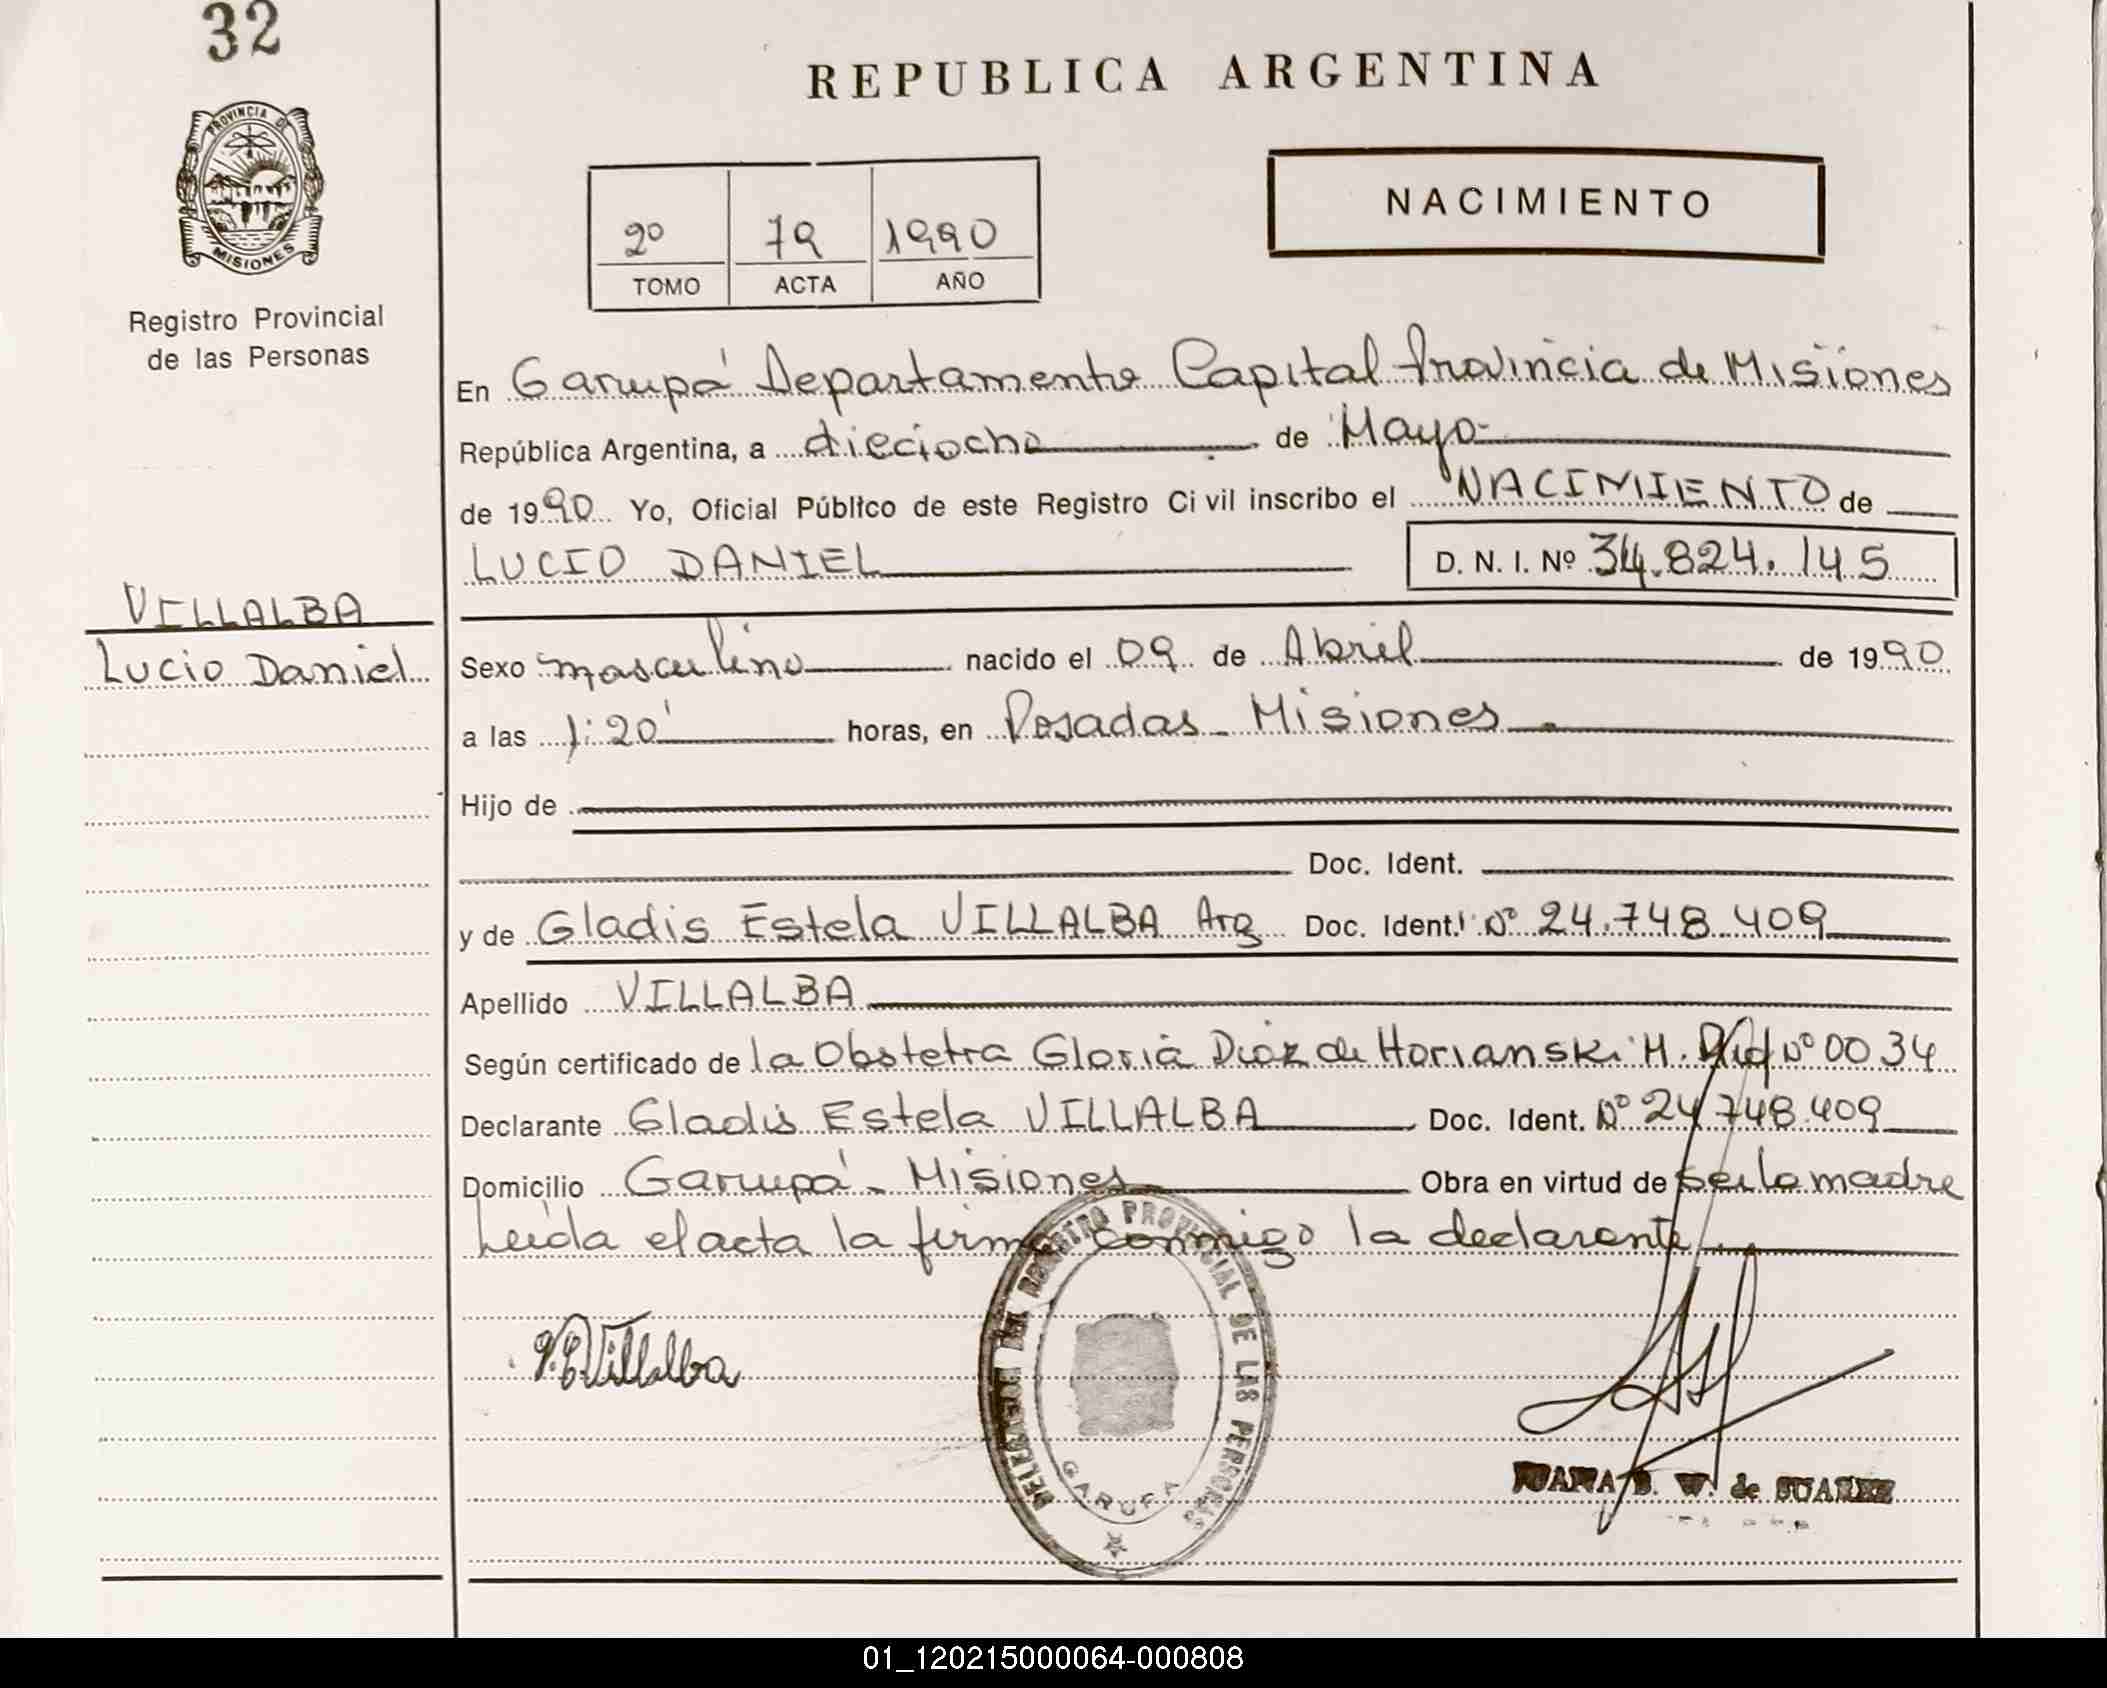 32
REPUBLICA ARGENTINA
PROVINCIA DE
MISIONES
NACIMIENTO
2º 79 1990
TOMO ACTA AÑO
Registro Provincial
de las Personas
En Garupá Departamento Capital Provincia de Misiones
República Argentina, a dieciocho de Mayo
de 1990 Yo, Oficial Público de este Registro Civil inscribo el NACIMIENTO de
LUCIO DANIEL D. N. I. Nº 34.824.145
VILLALBA
Lucio Daniel
Sexo masculino nacido el 09 de Abril de 1990
a las 1:20' horas, en Posadas - Misiones
Hijo de
Doc. Ident.
y de Gladis Estela VILLALBA Arg Doc. Ident. Nº 24.748.409
Apellido VILLALBA
Según certificado de la Obstetra Gloria Diaz de Horianski M. Nº 0034
Declarante Gladis Estela VILLALBA Doc. Ident. Nº 24.748.409
Domicilio Garupá - Misiones Obra en virtud de ser la madre
Leída el acta la firma conmigo la declarante
DELEGACION DEL REGISTRO PROVINCIAL DE LAS PERSONAS
GARUPA
G.E.Villalba
JUANA B. W. de SUAREZ
01_120215000064-000808